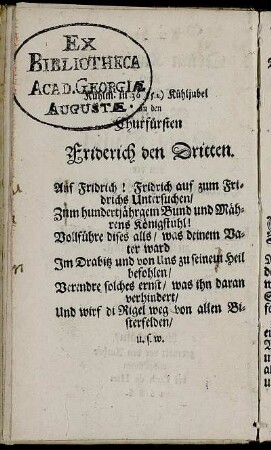 EX
BIBLIOTHECA
ACAD. GEORGIÆ
AUGUSTÆ.
Kühlm. in 36 (51.) Kühljubel
an den
Churfürsten
Friderich den Dritten.
Auf Fridrich! Fridrich auf zum Fri-
drichs Untersuchen/
Zum hundertjährgem Bund und Mäh-
rens Königstuhl!
Vollführe dises alls/ was deinem Va-
ter ward
Im Drabitz und von Uns zu seinem Heil
befohlen/
Verendre solches ernst/ was ihn daran
verhindert/
Und wirf di Rigel weg von allen Bi-
sterfelden/
u. s. w.